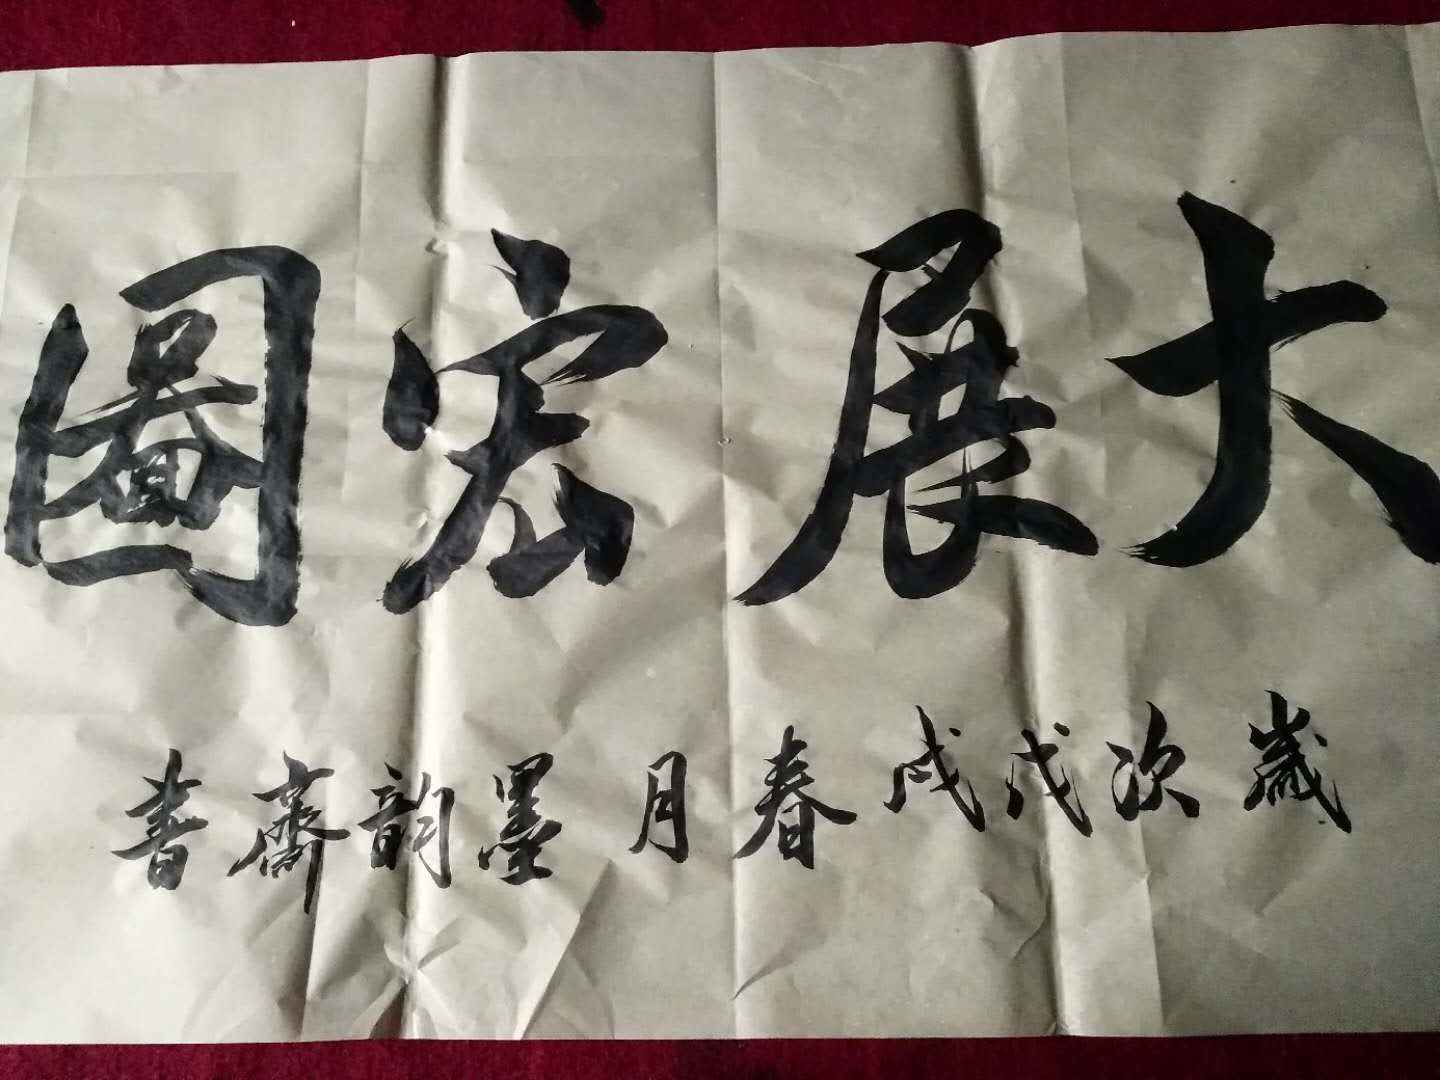 大展宏圖
歲次戊戌春月墨韵齋書